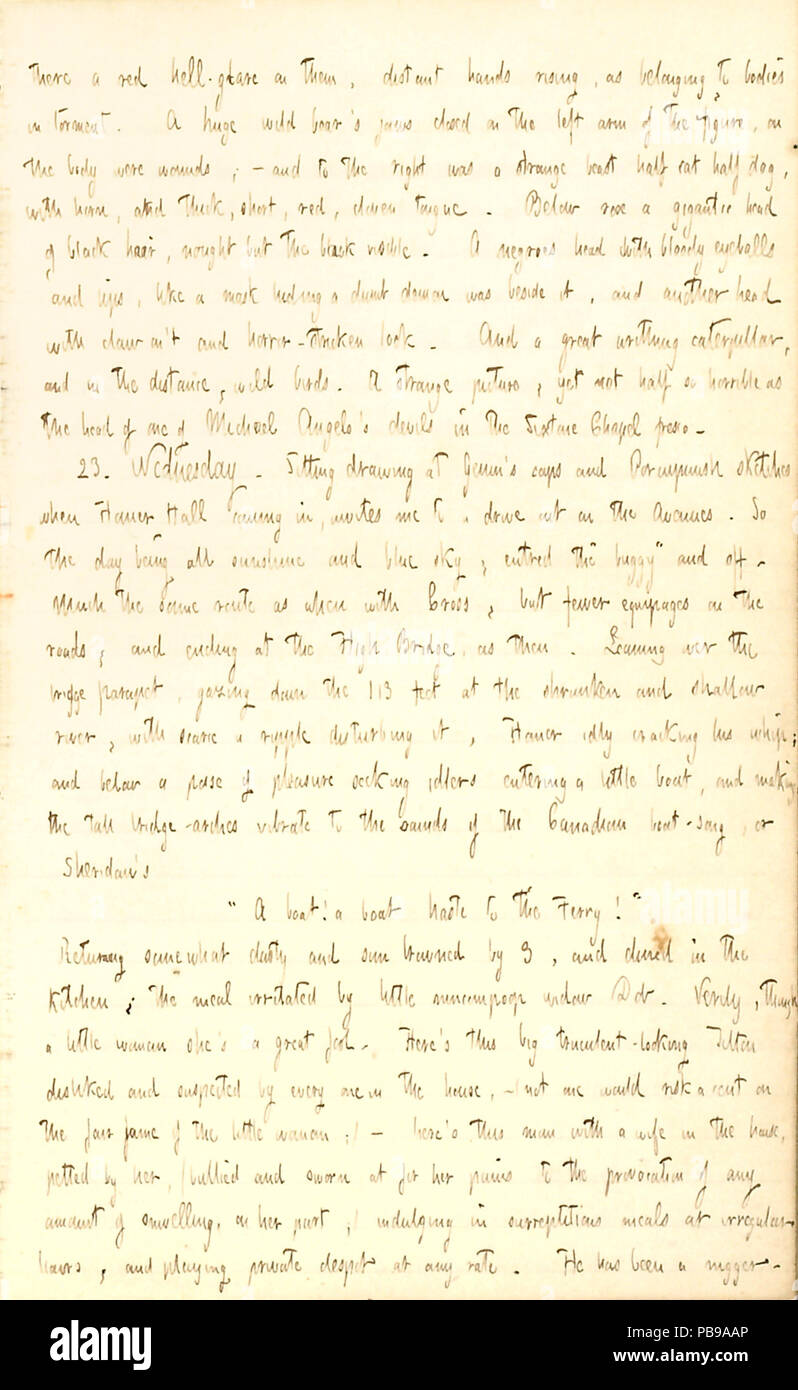 there a red hell-glare on them, distant hands rising, as belonging to bodies
in torment. A huge wild boar's jaws closed on the left arm of the figure, on
the body were wounds; - and to the right was a strange beast half cat half dog,
with horn, and thick, short, red, cloven tongue. Below rose a gigantic head
of black hair, nought but the black visible. A negroes head with bloody eyeballs
and lips, like a mask hiding a dumb demon was beside it, and another head
with claw on't and horror-stricken look. And a great writhing caterpillar,
and in the distance, wild birds. A strange picture, yet not half so horrible as
the head of one of Michael Angelo's devils in the Sixtine Chapel fresco.
23. Wednesday. Sitting drawing at Genin's caps and Porcupinish sketches
when Homer Hall coming in, invites me to a drive out on the Avenues. So
the day being all sunshine and blue sky, entred the "buggy" and off.
Much the same route as when with Cross, but fewer equipages on the
roads, and ending at the High Bridge, as then. Leaning over the
bridge parapet, gazing down the 113 feet at the shrunken and shallow
river, with scarce a ripple disturbing it, Homer idly cracking his whip;
and below a posse of pleasure seeking idlers entering a little boat, and making
the tall bridge-arches vibrate to the sounds of the Canadian boat-song, or
Sheridan's
"A boat! a boat haste to the Ferry!"
Returning somewhat dusty and sun browned by 3, and dined in the
kitchen; the meal irritated by little nincompoop widow Dob. Verily, though
a little woman she's a great fool. Here's this big truculent-looking Tilton
disliked and suspected by every one in the house, - (not one would risk a cent on
the fair fame of the little woman;) - here's this man with a wife in the house,
petted by her, (bullied and sworn at for her pains to the provocation of any
amount of snivelling, on her part,) indulging in surreptitious meals at irregular
hours, and playing private despot at any rate. He has been a nigger-
alamy
Image ID: PB9AAP
www.alamy.com